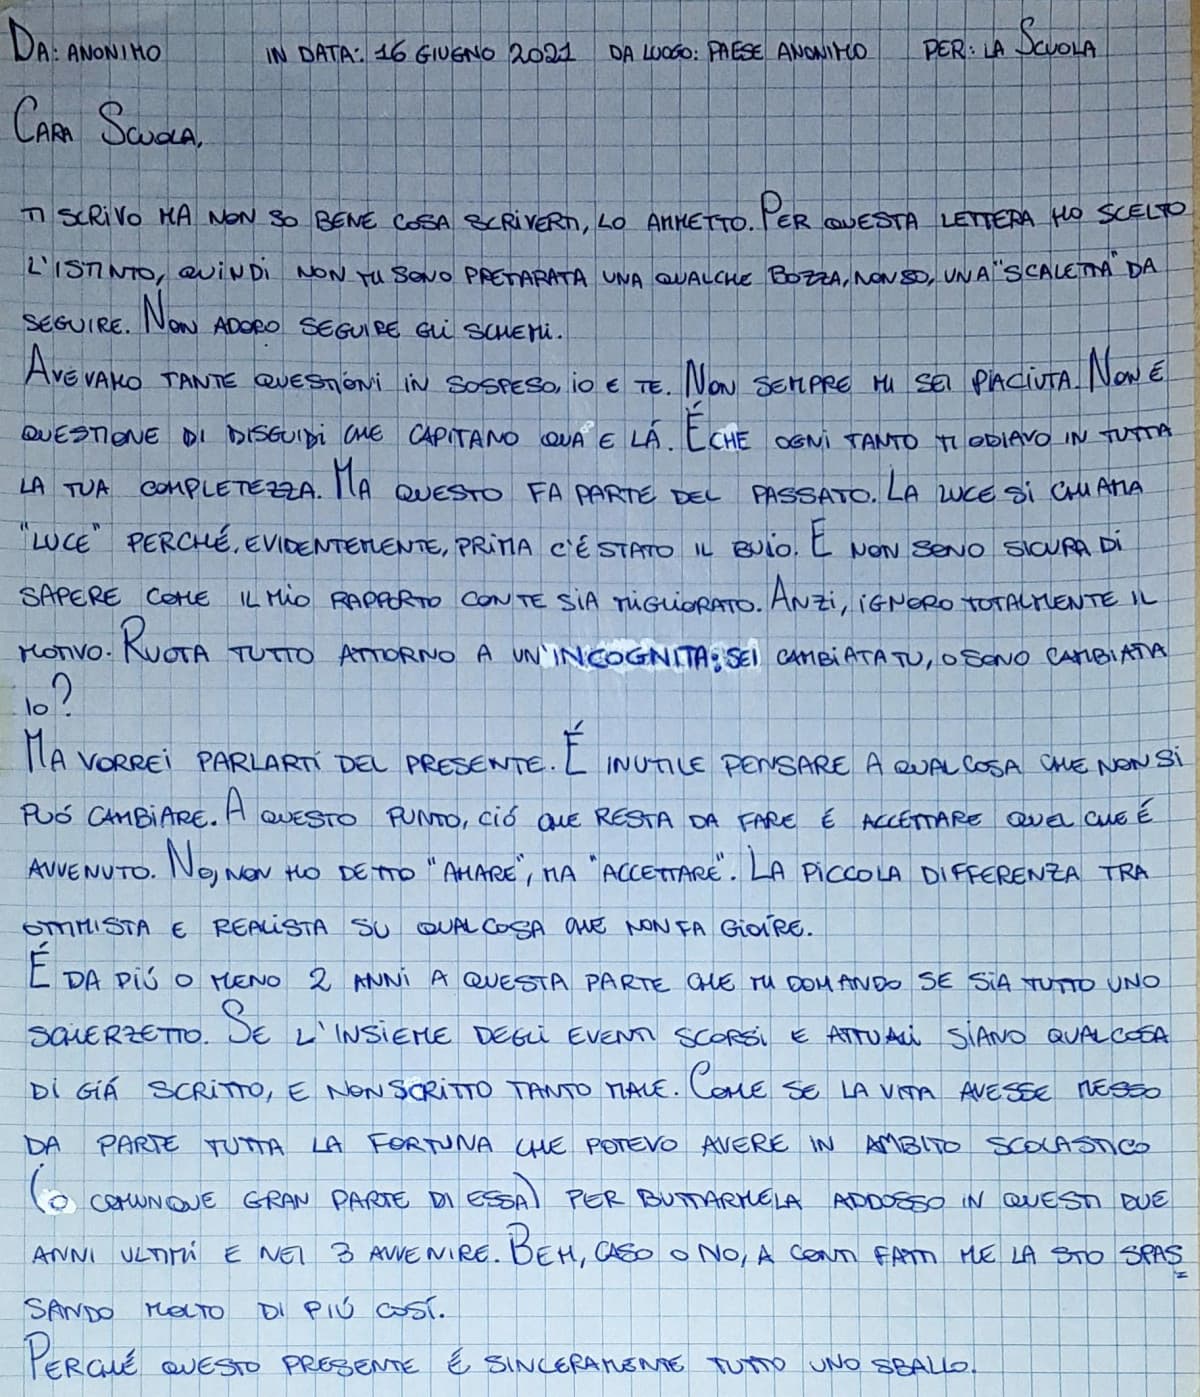 DA: ANONIMO IN DATA: 16 GIUGNO 2021 DA LUOGO: PAESE ANONIMO PER: LA SCUOLA
CARA SCUOLA,
TI SCRIVO MA NON SO BENE COSA SCRIVERTI, LO AMMETTO. PER QUESTA LETTERA HO SCELTO
L'ISTINTO, QUINDI NON MI SONO PREPARATA UNA QUALCHE BOZZA, NON SO, UNA "SCALETTA" DA
SEGUIRE. NON ADORO SEGUIRE GLI SCHEMI.
AVEVAMO TANTE QUESTIONI IN SOSPESO, IO E TE. NON SEMPRE MI SEI PIACIUTA. NON È
QUESTIONE DI DISGUIDI CHE CAPITANO QUA E LÁ. É CHE OGNI TANTO TI ODIAVO IN TUTTA
LA TUA COMPLETEZZA. MA QUESTO FA PARTE DEL PASSATO. LA LUCE SI CHIAMA
"LUCE" PERCHÉ, EVIDENTEMENTE, PRIMA C'É STATO IL BUIO. E NON SONO SICURA DI
SAPERE COME IL MIO RAPPORTO CON TE SIA MIGLIORATO. ANZI, IGNORO TOTALMENTE IL
MOTIVO. RUOTA TUTTO ATTORNO A UN'INCOGNITA: SEI CAMBIATA TU, O SONO CAMBIATA
IO?
MA VORREI PARLARTI DEL PRESENTE. É INUTILE PENSARE A QUALCOSA CHE NON SI
PUÓ CAMBIARE. A QUESTO PUNTO, CIÓ CHE RESTA DA FARE É ACCETTARE QUEL CHE É
AVVENUTO. NO, NON HO DETTO "AMARE", MA "ACCETTARE". LA PICCOLA DIFFERENZA TRA
OTTIMISTA E REALISTA SU QUALCOSA CHE NON FA GIOIRE.
É DA PIÚ O MENO 2 ANNI A QUESTA PARTE CHE MI DOMANDO SE SIA TUTTO UNO
SCHERZETTO. SE L'INSIEME DEGLI EVENTI SCORSI E ATTUALI SIANO QUALCOSA
DI GIÁ SCRITTO, E NON SCRITTO TANTO MALE. COME SE LA VITA AVESSE MESSO
DA PARTE TUTTA LA FORTUNA CHE POTEVO AVERE IN AMBITO SCOLASTICO
(O COMUNQUE GRAN PARTE DI ESSA) PER BUTTARMELA ADDOSSO IN QUESTI DUE
ANNI ULTIMI E NEI 3 AVVENIRE. BEH, CASO O NO, A CONTI FATTI ME LA STO SPAS=
SANDO MOLTO DI PIÚ COSÍ.
PERCHÉ QUESTO PRESENTE É SINCERAMENTE TUTTO UNO SBALLO.